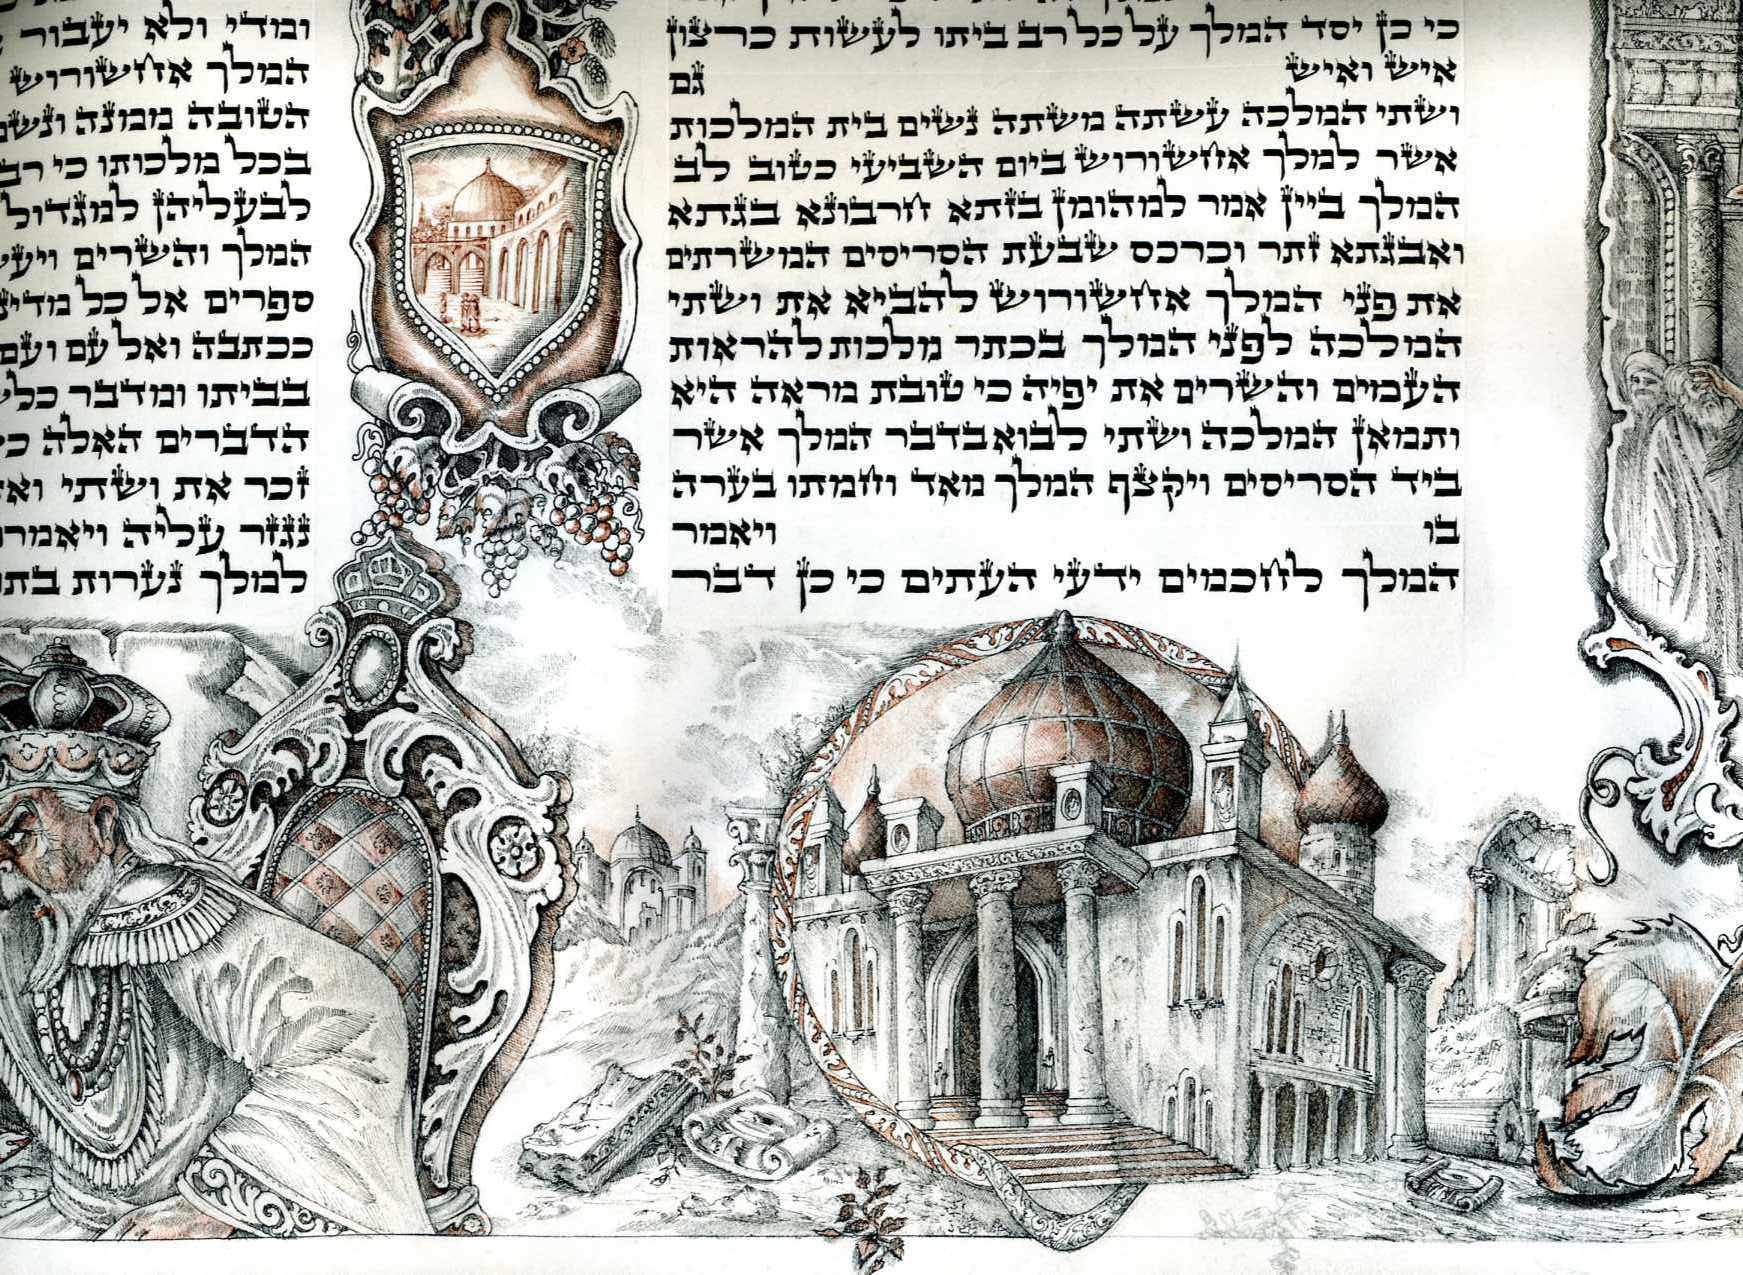 כי כן יסד המלך על כל רב ביתו לעשות כרצון
איש ואיש גם
ושתי המלכה עשתה משתה נשים בית המלכות
אשר למלך אחשורוש ביום השביעי כטוב לב
המלך ביין אמר למהומן בזתא חרבונא בגתא
ואבגתא זתר וכרכס שבעת הסריסים המשרתים
את פני המלך אחשורוש להביא את ושתי
המלכה לפני המלך בכתר מלכות להראות
העמים והשרים את יפיה כי טובת מראה היא
ותמאן המלכה ושתי לבוא בדבר המלך אשר
ביד הסריסים ויקצף המלך מאד וחמתו בערה
בו ויאמר
המלך לחכמים ידעי העתים כי כן דבר
ומדי ולא יעבור
המלך אחשורוש
הטובה ממנה ונשמ
בכל מלכותו כי רב
לבעליהן למגדול
המלך והשרים ויעש
ספרים אל כל מדינ
ככתבה ואל עם ועם
בביתו ומדבר כלש
הדברים האלה כש
זכר את ושתי וא
נגזר עליה ויאמרו
למלך נערות בתו